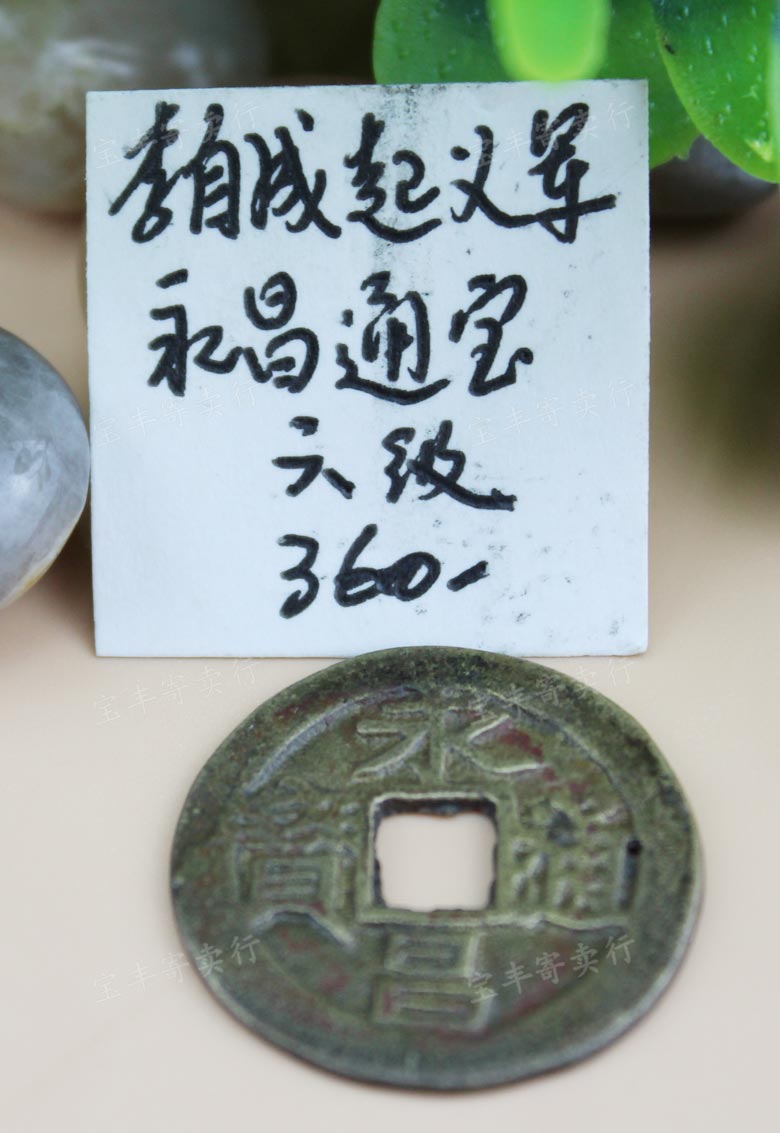 李自成起义军
永昌通宝
六级
360-
永昌通寳
宝丰寄卖行
宝丰寄卖行
宝丰寄卖行
宝丰寄卖行
宝丰寄卖行
宝丰寄卖行
宝丰寄卖行
宝丰寄卖行